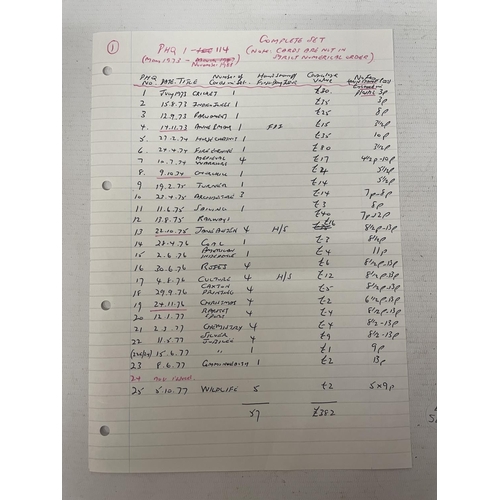 1 PHQ 1 - 114 COMPLETE SET
(NOTE: CARDS ARE NOT IN
STRICT NUMERICAL ORDER)
PHQ NO. DATE. TITLE Number of Cards in Set. Catalogue Value
1 July 1973 CRICKET 1 £30. 3p
2 15.8.73 1 £15 3p
3 12.9.73 PARLIAMENT 1 £25 8p
4. 14.11.73 1 £15 3½p
5. 27.2.74 1 £35 10p
6. 24.4.74 FIRE ENGINE 1 £80 3½p
7 10.7.74 MEDIEVAL WARRIORS 4 £17 4½p-10p
8. 9.10.74 CHURCHILL 1 £24 5½p
9 19.2.75 TURNER 1 £14 5½p
10 23.4.75 ARCHITECTURE 3 £14 7p-8p
11 11.6.75 SAILING 1 £3 8p
12 13.8.75 RAILWAYS £40 7p-12p
13 22.10.75 JANE AUSTEN 4 H/S £16 8½p-13p
14 28.4.76 COAL 1 £3 8½p
15 2.6.76 AMERICAN 1 £4 11p
16 30.6.76 ROSES 4 £6 8½p-13p
17 4.8.76 CULTURE 4 H/S £12 8½p-13p
18 29.9.76 CAXTON PRINTING 4 £5 8½p-13p
19 24.11.76 CHRISTMAS 4 £2 6½p-13p
20 12.1.77 RACKET 4 £4 8½p-13p
21 2.3.77 CHEMISTRY 4 £4 8½-13p
22 11.5.77 SILVER JUBILEE 4 £9 8½-13p
15.6.77 " 1 £1 9p
23 8.6.77 1 £2 13p
24 NOT ISSUED
25 5.10.77 WILDLIFE 5 £2 5x9p
57 £382